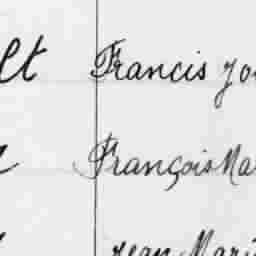 lt Francis Jo
François Ma
Jean Mari